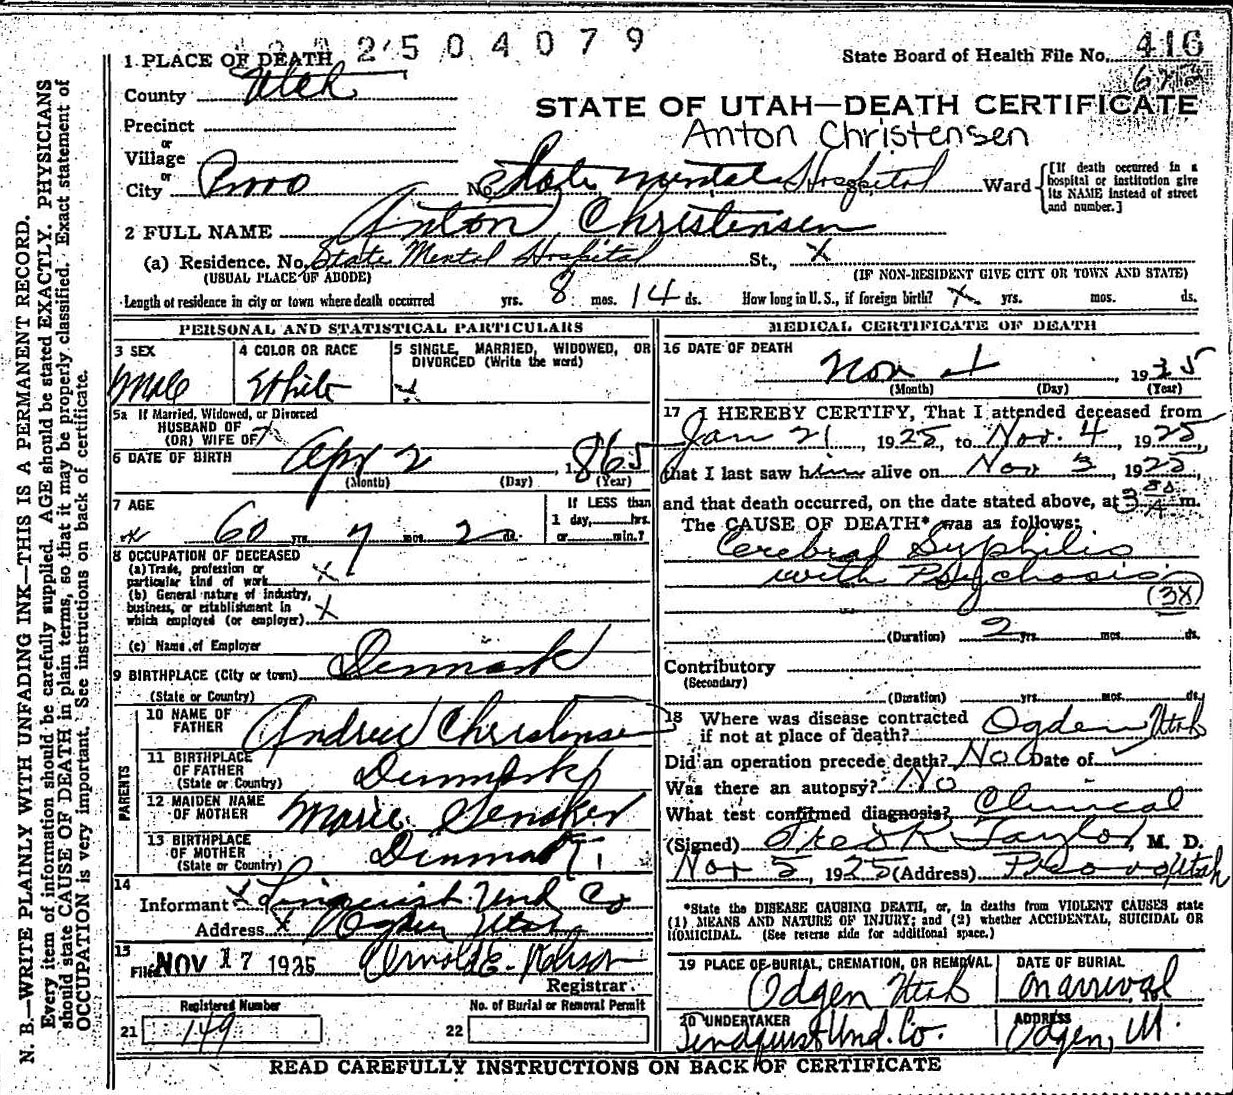 2504079
1 PLACE OF DEATH
State Board of Health File No. 416
County Utah
STATE OF UTAH—DEATH CERTIFICATE
Precinct
Anton Christensen
or
Village
or
City Provo No. State Mental Hospital Ward
[If death occurred in a hospital or institution give its NAME instead of street and number.]
2 FULL NAME Anton Christensen
(a) Residence. No. State Mental Hospital St., x
(USUAL PLACE OF ABODE) (IF NON-RESIDENT GIVE CITY OR TOWN AND STATE)
Length of residence in city or town where death occurred yrs. 8 mos. 14 ds. How long in U.S., if foreign birth? x yrs. mos. ds.
PERSONAL AND STATISTICAL PARTICULARS
3 SEX
Male
4 COLOR OR RACE
White
5 SINGLE, MARRIED, WIDOWED, OR DIVORCED (Write the word)
x
5a If Married, Widowed, or Divorced
HUSBAND OF
(OR) WIFE OF x
6 DATE OF BIRTH Apr 2, 1865
(Month) (Day) (Year)
7 AGE
60 yrs. 7 mos. 2 ds.
If LESS than
1 day, hrs.
or min.?
8 OCCUPATION OF DECEASED
(a) Trade, profession or
particular kind of work x
(b) General nature of industry,
business, or establishment in
which employed (or employer) x
(c) Name of Employer
9 BIRTHPLACE (City or town) Denmark
(State or Country)
PARENTS
10 NAME OF
FATHER Andrew Christensen
11 BIRTHPLACE
OF FATHER Denmark
(State or Country)
12 MAIDEN NAME
OF MOTHER Marie
13 BIRTHPLACE
OF MOTHER Denmark
(State or Country)
14
Informant x Linquist Und Co
Address x Ogden Utah
15
Filed NOV 17 1925
Registrar.
Registered Number
21 149
No. of Burial or Removal Permit
22
MEDICAL CERTIFICATE OF DEATH
16 DATE OF DEATH
Nov 4, 1925
(Month) (Day) (Year)
17 I HEREBY CERTIFY, That I attended deceased from
Jan 21, 1925, to Nov. 4, 1925,
that I last saw him alive on Nov 3, 1925,
and that death occurred, on the date stated above, at 3 A m.
The CAUSE OF DEATH* was as follows:
Cerebral Syphilis
with Psychosis
(38)
(Duration) 2 yrs. mos. ds.
Contributory
(Secondary)
(Duration) yrs. mos. ds.
18 Where was disease contracted
if not at place of death? Ogden Utah
Did an operation precede death? No Date of
Was there an autopsy? No
What test confirmed diagnosis? Clinical
(Signed) Fred K Taylor, M. D.
Nov 5, 1925 (Address) Provo Utah
*State the DISEASE CAUSING DEATH, or, in deaths from VIOLENT CAUSES state
(1) MEANS AND NATURE OF INJURY; and (2) whether ACCIDENTAL, SUICIDAL OR
HOMICIDAL. (See reverse side for additional space.)
19 PLACE OF BURIAL, CREMATION, OR REMOVAL
Odgen Utah
DATE OF BURIAL
on arrival
20 UNDERTAKER
Lindquist Und. Co.
ADDRESS
Odgen, Ut.
READ CAREFULLY INSTRUCTIONS ON BACK OF CERTIFICATE
N. B.—WRITE PLAINLY WITH UNFADING INK—THIS IS A PERMANENT RECORD.
Every item of information should be carefully supplied. AGE should be stated EXACTLY. PHYSICIANS
should state CAUSE OF DEATH in plain terms, so that it may be properly classified. Exact statement of
OCCUPATION is very important. See instructions on back of certificate.